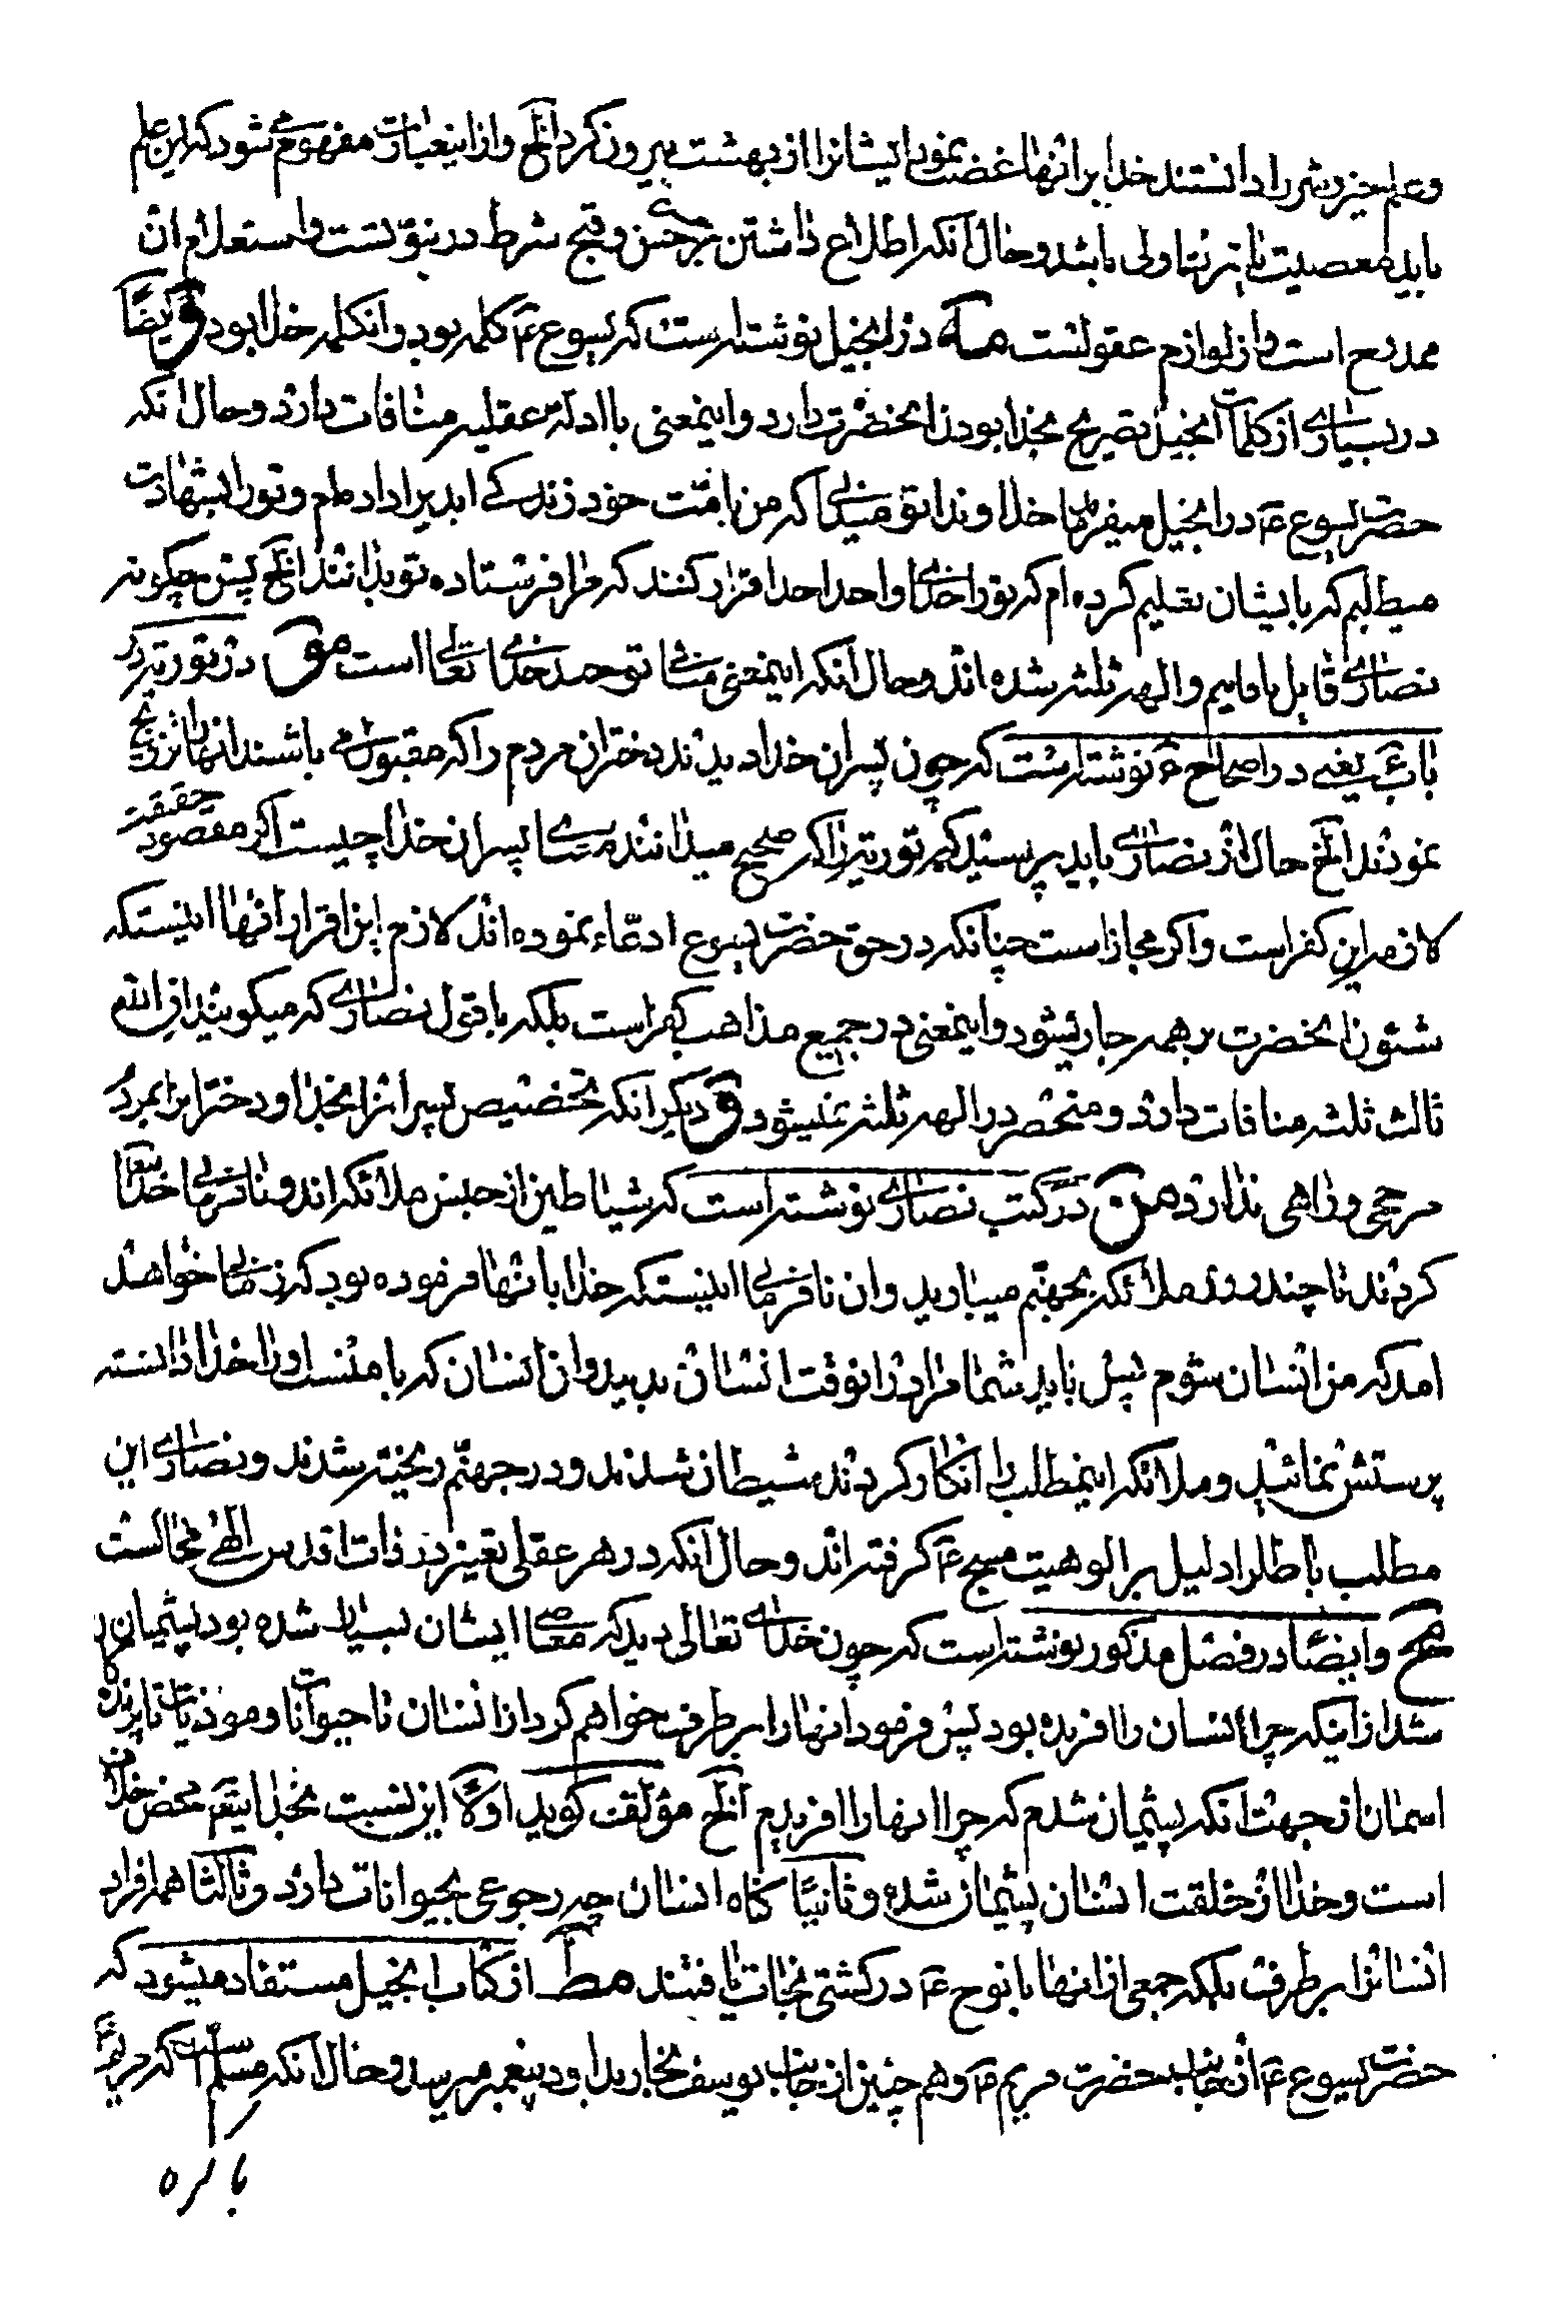 وعلم خیر و شر را دانستند خدا بر انها غضب نمود ایشانرا از بهشت بیرون کرد الخ و از اینعبارت مفهوم می شود که این علم
باید معصیت یا ترتما ولی باشد و حال انکه اطلاع داشتن بر حسن و قبح شرط در نبوتست و استعلام ان
ممدوح است و از لوازم عقولست مه در انجیل نوشته است که یسوع ع کلمه بود و انکلمه خدا بود و ایضًا
در بسیاری از کلمات انجیل تصریح بخدا بودن انحضرت دارد و اینمعنی با ادله عقلیه منافات دارد و حال انکه
حضرت یسوع ع در انجیل میفرماید خداوندا تو میدانی که من بامتت خود زندکی ابدیرا داده‌ام و تورا بشهادت
میطلبم که بایشان تعلیم کرده ام که تورا خدای واحد احد اقرار کنند که مرا فرستاده تو بدانند الخ پس چکونه
نصاری قایل باقانیم و الهه ثلثه شده اند و حال انکه اینمعنی منافی توحید خدای تعالی است مو در توریة در
باب ع یعنی در اصحاح ع نوشته است که چون پسران خدا دیدند دختران مردم را که مقبول می باشند انهارا تزویج
نمودند الخ حال از نصاری باید پرسید که توریة را که صحیح میدانند معنی پسران خدا چیست اکر مقصود حقیقت
لازمه این کفر است و اکر مجاز است چنانکه در حق حضرت یسوع ادعاء نموده اند لازم این اقرار انها اینستکه
شئون انحضرت بر همه جاریشود و اینمعنی در جمیع مذاهب کفر است بلکه با قول نصاری که میکویند ان الله
ثالث ثلثه منافات دارد و منحصر در الهه ثلثه نمیشود و دیکر انکه تخصیص پسرانرا بخدا و دخترانرا بمردم
مرجحی و راهی ندارد من در کتب نصاری نوشته است که شیاطین از جنس ملائکه اند و نافرمانی خدا
کردند تا چند روز ملائکه بجهنم میباوید و ان نافرمانی اینستکه خدا بانها فرموده بود که زمانی خواهد
امد که من انسان شوم پس باید شما مرا در انوقت انسان ندیده و ان انسان که با منست اورا خدا دانسته
پرستش نمائید و ملائکه اینمطلب را انکار کردند شیطان شدند و در جهنم ریخته شدند و نصاری این
مطلب باطلرا دلیل بر الوهیت مسیح ع کرفته اند و حال انکه در هر عقلی تغییر در ذات اقدس الهی محالست
مح و ایضًا در فصل مذکور نوشته است که چون خدای تعالی دید که معاصی ایشان بسیار شده بود پشیمان
شد از اینکه چرا انسان را افریده بود پس فرمود انهارا بر طرف خواهم کرد از انسان تا حیوانات و موذیات تا پرندکان
اسمان از جهت انکه پشیمان شدم که چرا انهارا افریدم الخ مؤلف کوید اولًا این نسبت بخدایتع محض خلاف
است و خدا از خلقت انسان پشیمان نشده و ثانیًا کناه انسان چه رجوعی بحیوانات دارد و ثالثًا همه افراد
انسانرا بر طرف بلکه جمعی از انها با نوح ع در کشتی نجات یافتند مط از کتاب انجیل مستفاد میشود که
حضرت یسوع ع از جانب حضرت مریم ع و هم چنین از جانب یوسف نجار بداود پیغمبر میرسد و حال انکه مسلم است که مریم
باکره